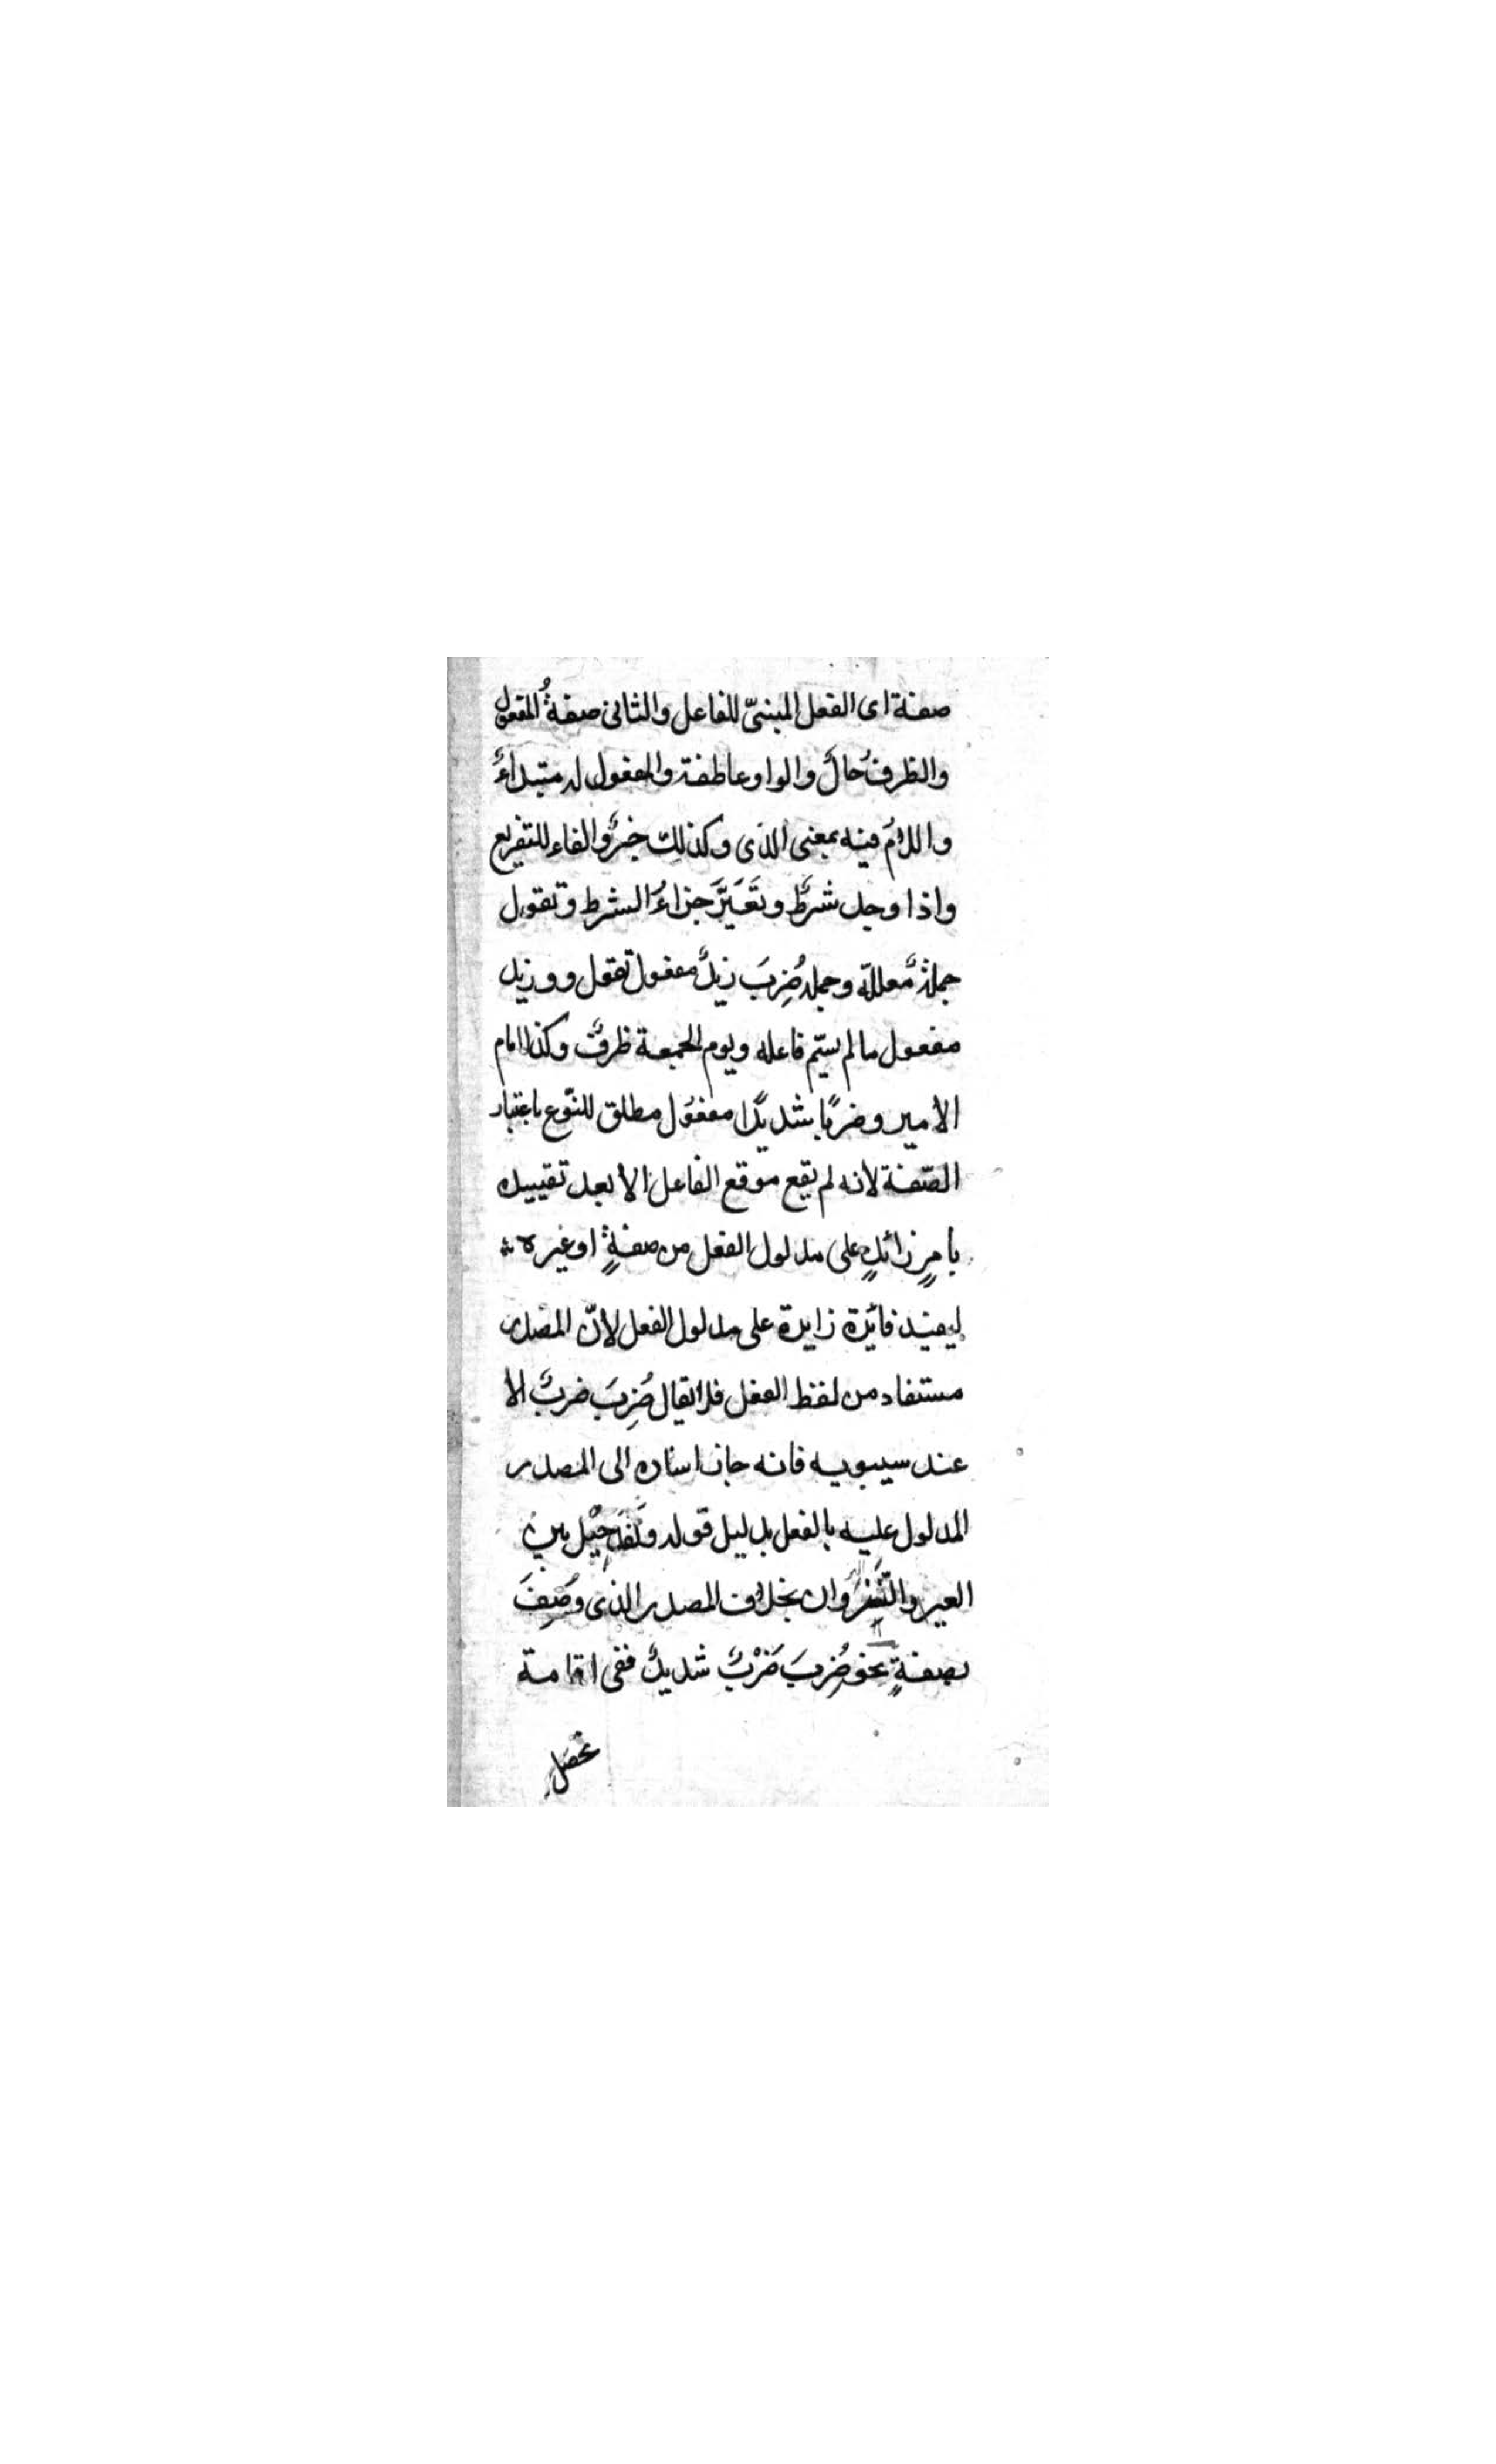 صفة اى الفعل المبنىّ للفاعل والثانى صفةُ المفعول
والظرفُ حالٌ والواو عاطفة والمفعول له مبتداءٌ
واللامُ فيه بمعنى الذى وكذلك خبرٌ والفاء للتفريع
واذا وجد شرطٌ وتَعَيَّنَ جزاءُ الشرط وتقول
جملةٌ معللّة وجملة ضُرِبَ زيدٌ مفعول تقول و وزيد
مفعول ما لم يسّم فاعله ويوم الجمعة ظرفٌ وكذا امام
الامير وضربًا شديدًا مفعول مطلق للنّوع باعتبار
الصّفة لانه لم يقع موقع الفاعل الا بعد تقييده
بامرٍ زائدٍ على مدلول الفعل من صفةٍ او غيره
ليفيد فائدة زايدة على مدلول الفعل لانّ المصدر
مستفاد من لفظ الفعل فلا يقال ضُرِبَ ضربٌ الا
عند سيبويه فانه جاز اسناده الى المصدر
المدلول عليه بالفعل بدليل قوله وقَد حِيْل بين
العير والنَّزوان بخلاف المصدر الذى وُصِفَ
بصفةٍ نحو ضُرِبَ ضَرْبٌ شديدٌ ففى اقامة
تحصل